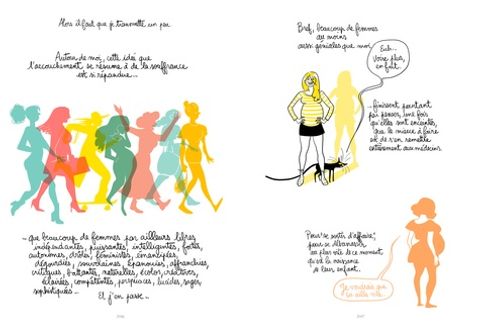 Alors il faut que je transmette un peu
Autour de moi, cette idée que
l'accouchement se résume à de la souffrance
est si répandue...
... que beaucoup de femmes par ailleurs libres
indépendantes, puissantes, intelligentes, fortes,
autonomes, drôles, féministes, émancipées,
dégourdies, souveraines, épanouies, affranchies,
critiques, battantes, naturelles, écolos, créatives
éclairées, compétentes, perspicaces, lucides, sages,
sophistiquées...
Et j'en passe...
Bref, beaucoup de femmes
au moins
aussi géniales que moi
Euh...
Voire plus,
en fait.
... finissent pourtant
par penser, une fois
qu'elles sont enceintes,
que le mieux à faire
est de s'en remettre
entièrement aux médecins.
Pour se sortir d'affaire,
pour se débarrasser
au plus vite de ce moment
qu'est la naissance
de leur enfant.
Je voudrais que
ça aille vite.